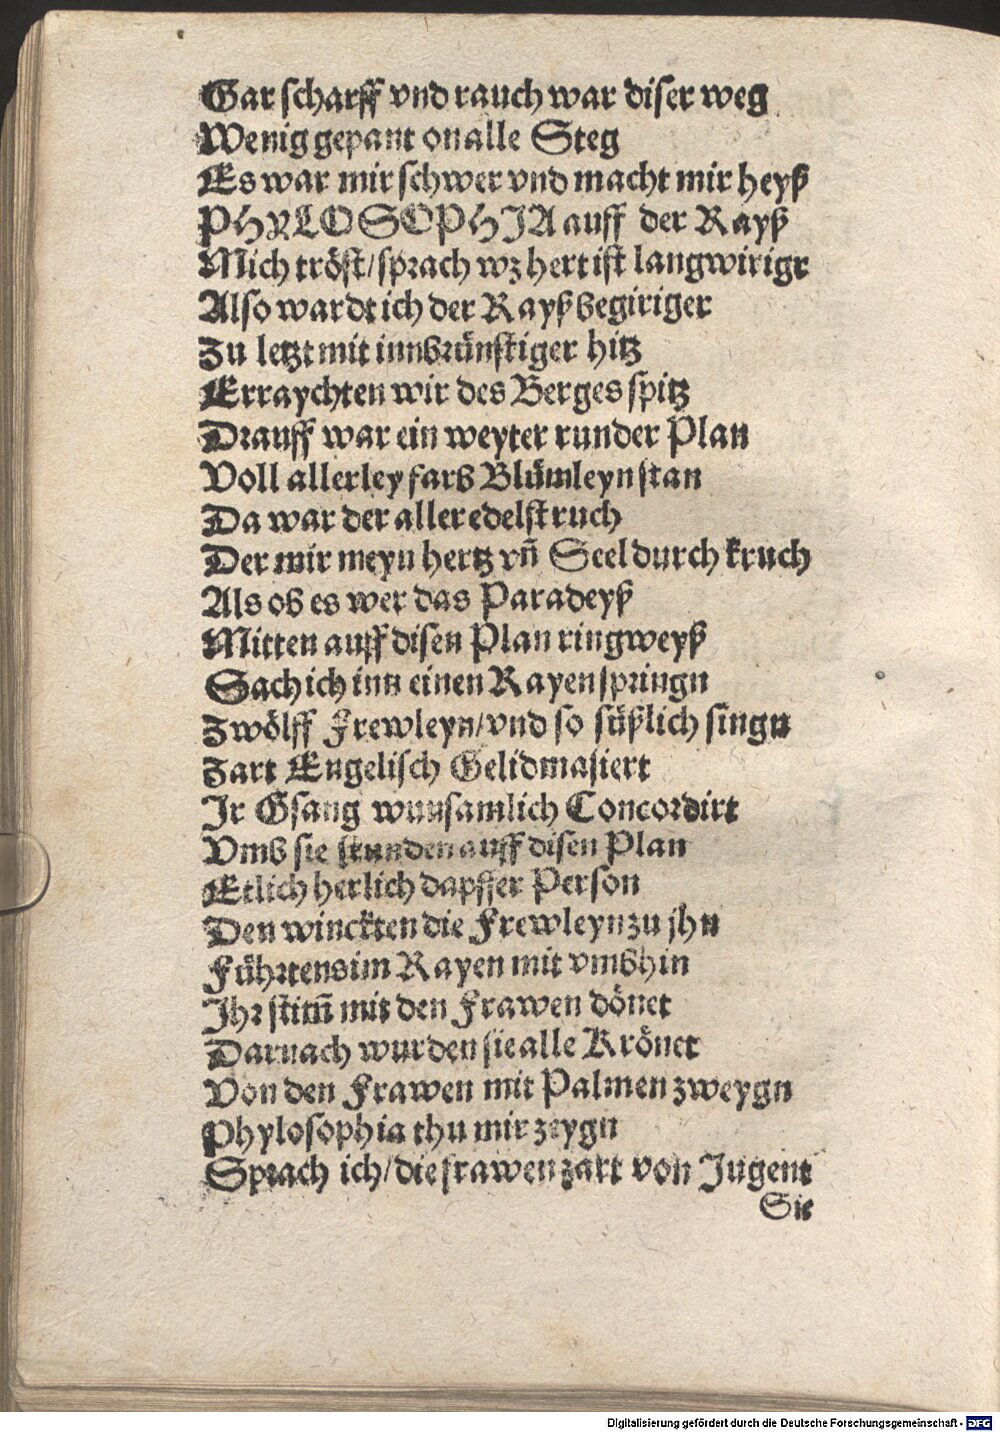 Gar scharff vnd rauch war diser weg
Wenig gepant on alle Steg
Es war mir schwer vnd macht mir heyß
PHYLOSOPHIA auff der Rayß
Mich tröst/sprach wz hert ist langwirigr
Also wardt ich der Rayß begiriger
Zu letzt mit innbrünstiger hitz
Erraychten wir des Berges spitz
Drauff war ein weyter runder Plan
Voll allerley farb Blümleyn stan
Da war der aller edelst ruch
Der mir meyn hertz vñ Seel durch kruch
Als ob es wer das Paradeyß
Mitten auff disen Plan ringweyß
Sach ich inn einen Rayen springn
Zwölff Frewleyn/vnd so süßlich singn
Zart Engelisch Gelidmasiert
Ir Gsang wunsamlich Concordirt
Vmb sie stunden auff disen Plan
Etlich herlich dapffer Person
Den winckten die Frewleyn zu jhn
Führtens im Rayen mit vmbhin
Ihr stim̃ mit den Frawen dönet
Darnach wurden sie alle Krönet
Von den Frawen mit Palmen zweygn
Phylosophia thu mir zeygn
Sprach ich/die frawen zart von Jugent
Sie
Digitalisierung gefördert durch die Deutsche Forschungsgemeinschaft - DFG